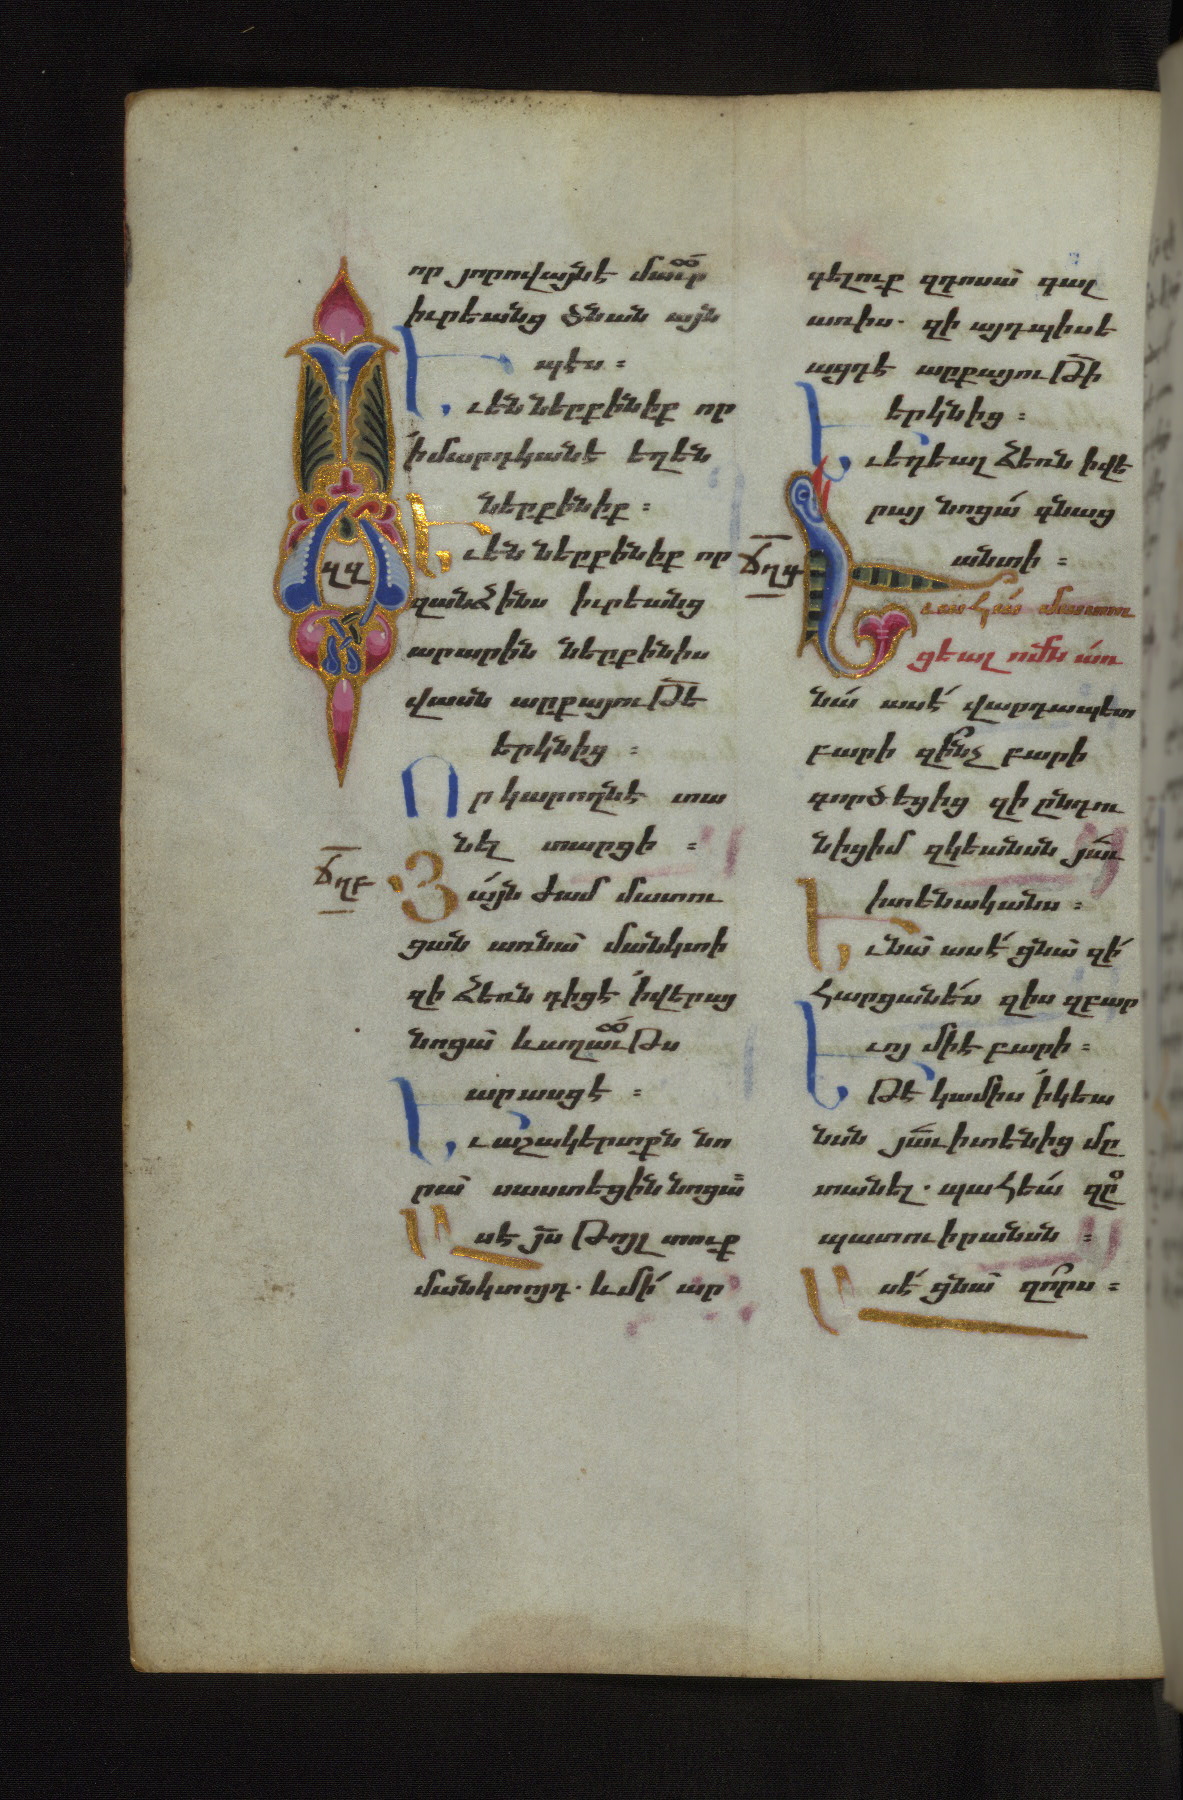 որ յորովայնէ մաւր
իւրեանց ծնան այն
պէս։
Եւ են ներքինիք որ
ի մարդկանէ եղեն
ներքինիք։
Եւ են ներքինիք որ
զանձինս իւրեանց
արարին ներքինիս
վասն արքայուԹե
երկնից։
Որ կարողնէ տա
նել տարցի։
ՃՂԲ
Յայն ժամ մատու
ցան առնա մանկտի
զի ձեռն դիցէ ի վերայ
նոցա և աղաւԹս
արասցէ։
Եւ աշակերտքն նո
րա սաստեցին նոցա
Ասէ յս Թոյլ տուք
մանկտոյդ. և մի ար
գելուք զդոսա գալ
առիս. զի այդպիսէ
այդէ արքայուԹի
երկնից։
Եւ եդեալ ձեռն ի վե
րայ նոցա գնաց
անտի։
ՃՂԳ
Եւ ահա մատու
ցեալ ոմն առ
նա ասէ վարդապետ
բարի զինչ բարի
գործեցից զի ընդու
նիցիմ զկեանսն յաւ
իտենականս։
Եւ նա ասէ ցնա զի
հարցանես զիս զբար
ւոյ մի է բարի։
Եւ Թէ կամիս ի կեա
նսն յաւիտենից մը
տանել. պահեա զը
պատուիրանսն։
Ասէ ցնա զորս։